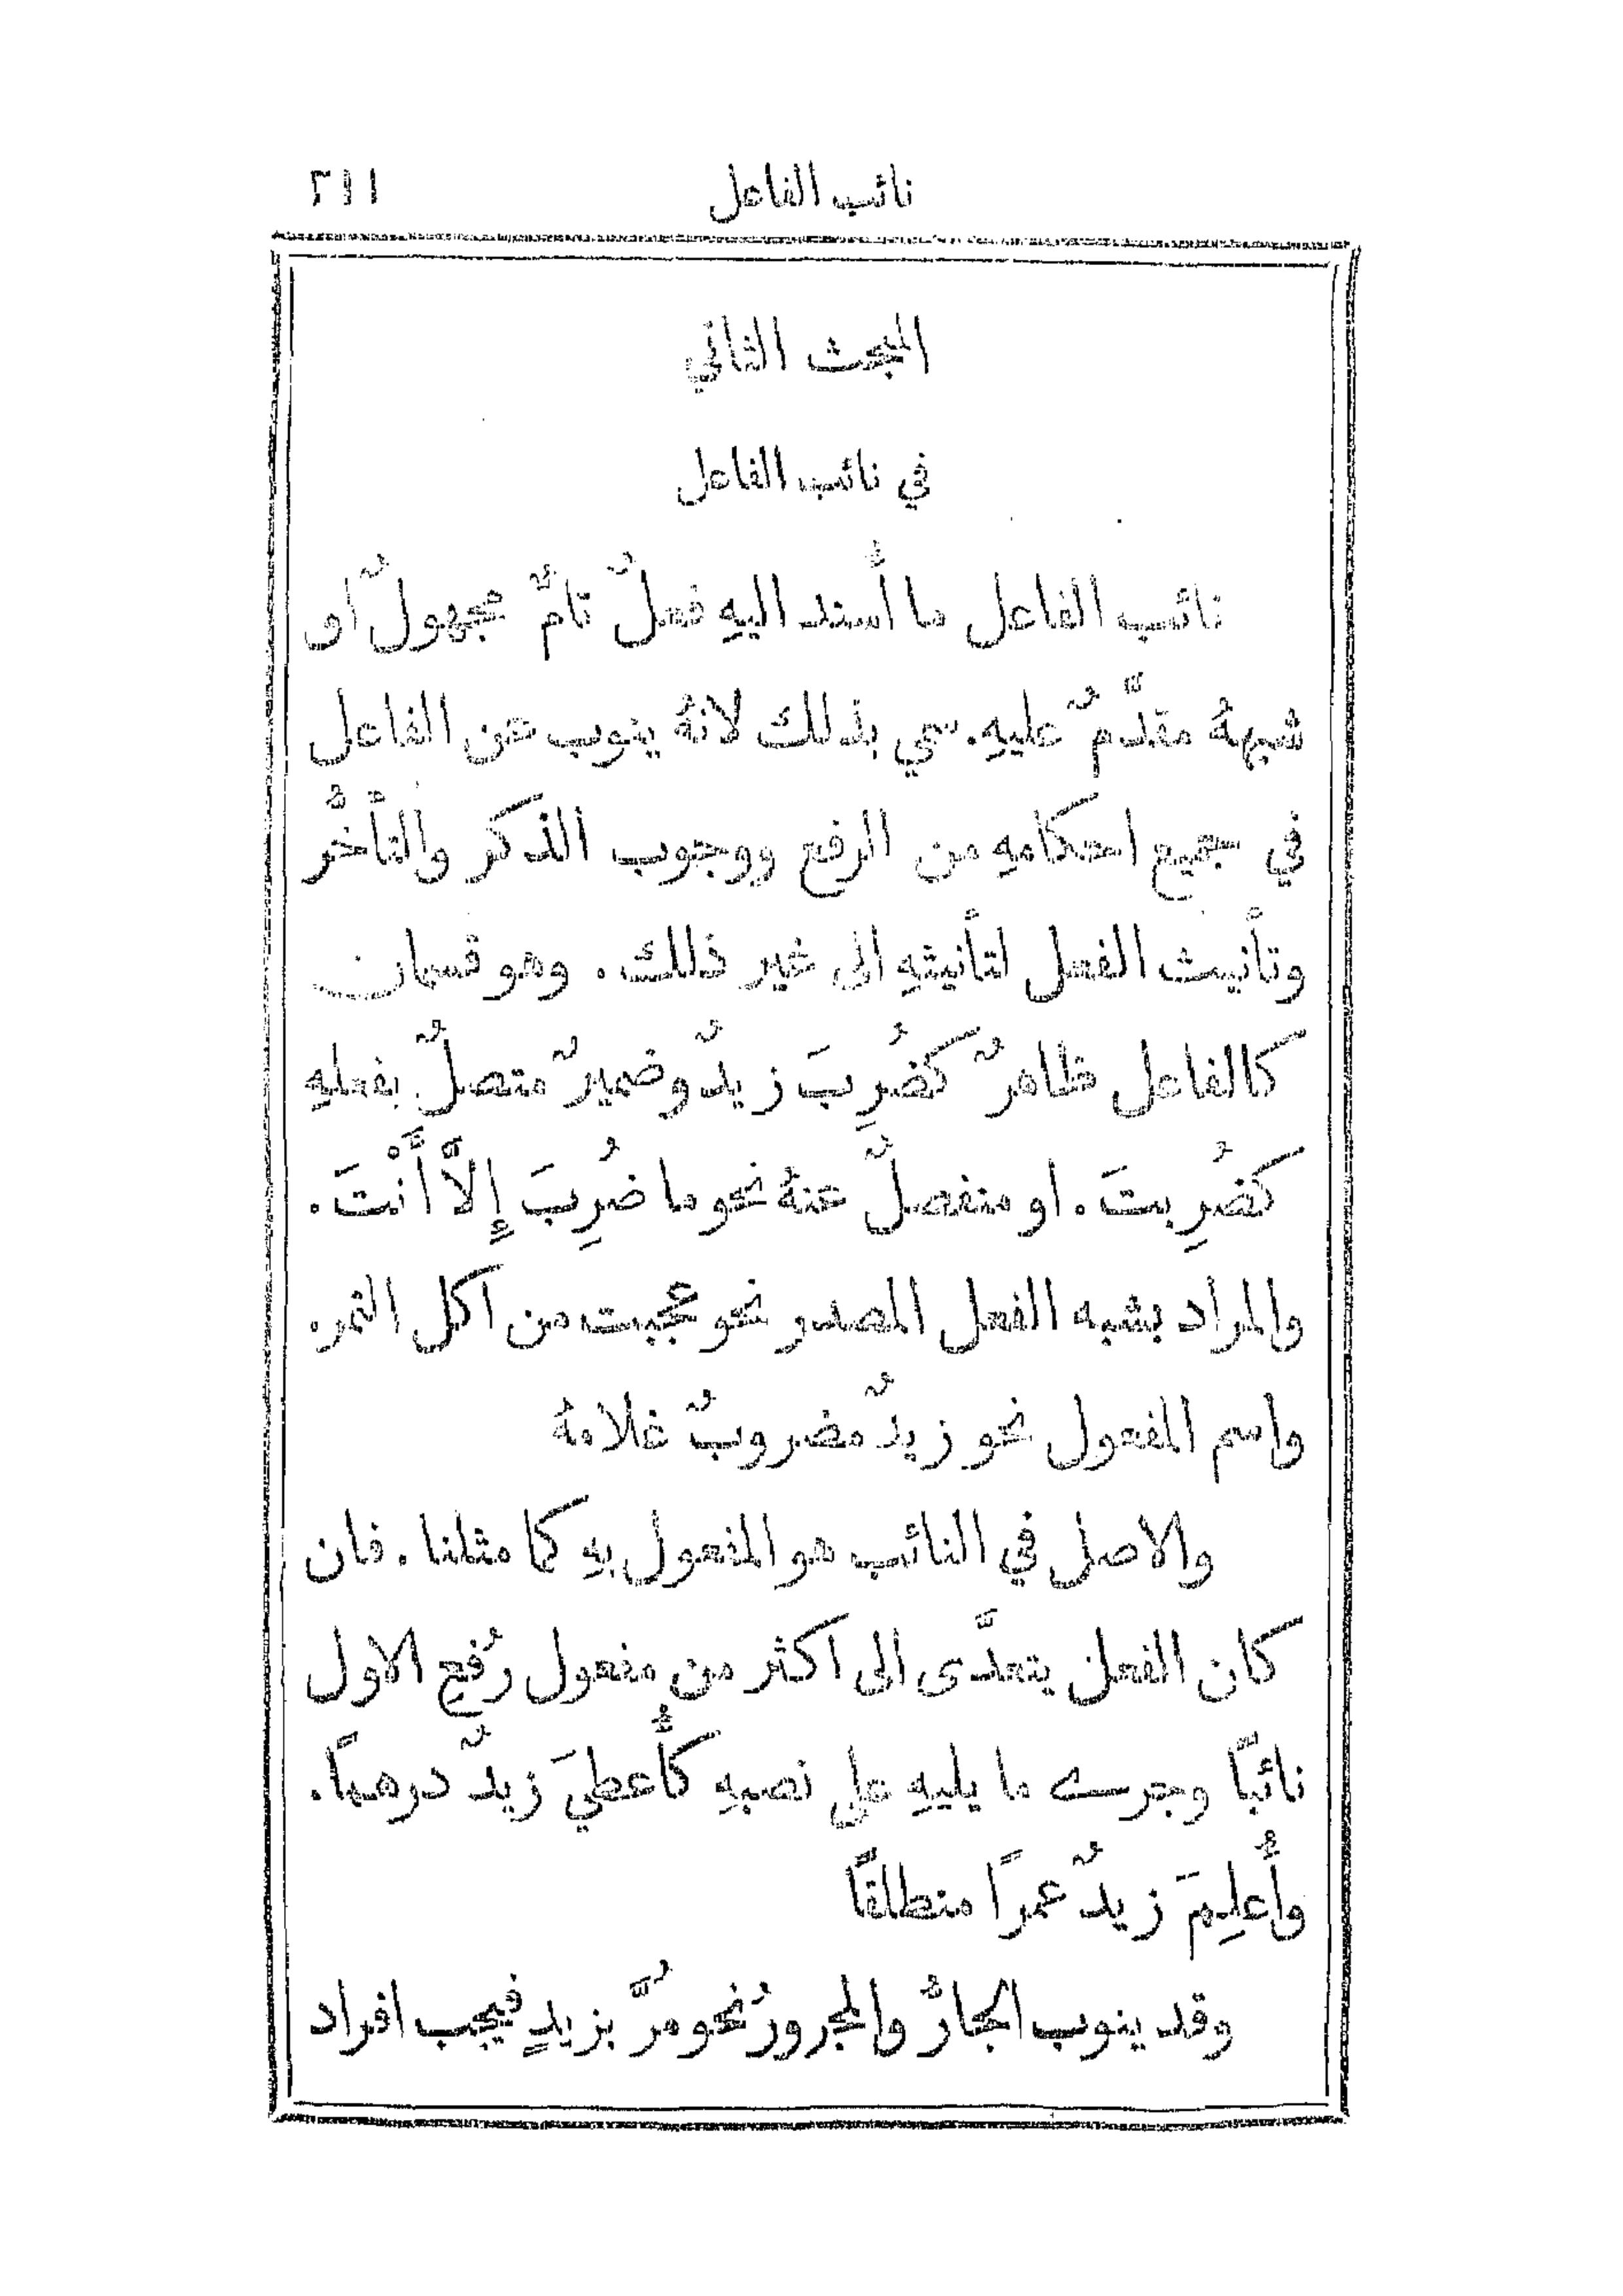 نائب الفاعل ٢١١
المبحث الثاني
في نائب الفاعل
نائب الفاعل ما أُسند اليهِ فعلٌ تامٌّ مجهولٌ او
شبههُ مقدَّمٌ عليهِ. سمي بذلك لانهُ ينوب عن الفاعل
في جميع احكامهِ من الرفع ووجوب الذكر والتأَخُّر
وتأَنيث الفعل لتأَنيثهِ الى غير ذلك. وهو قسمان
كالفاعل ظاهرٌ كضُرِبَ زيدٌ وضميرٌ متصلٌ بفعلهِ
كضُرِبتَ. او منفصلٌ عنهُ نحو ما ضُرِبَ إِلاَّ أَنْتَ.
والمراد بشبه الفعل المصدر نحو عجبت من اكل الثمر.
واسم المفعول نحو زيدٌ مضروبٌ غلامهُ
والاصل في النائب هو المفعول بهِ كما مثلنا. فان
كان الفعل يتعدَّى الى اكثر من مفعول رُفع الاول
نائبًا وجرى ما يليهِ على نصبهِ كأُعطيَ زيدٌ درهمًا.
وأُعلِمَ زيدٌ عمرًا منطلقًا
وقد ينوب الجارُّ والمجرورُ نحو مُرَّ بزيدٍ فيجب افراد